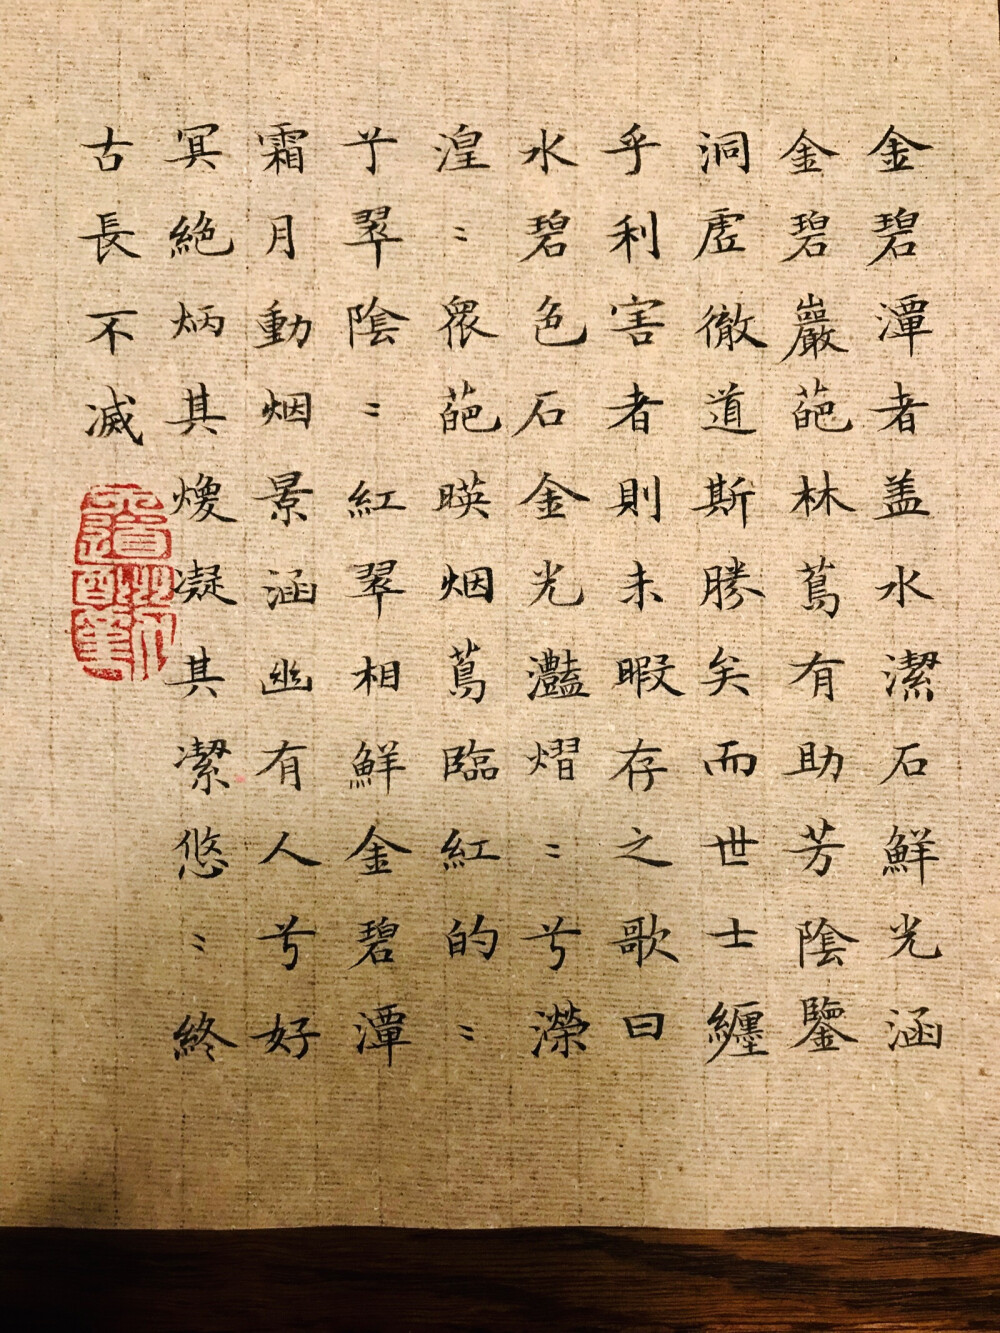 金碧潭者盖水潔石鮮光涵
金碧巖葩林蔦有助芳陰鑒
洞虚徹道斯勝矣而世士纏
乎利害者則未暇存之歌曰
水碧色石金光灩熠〻兮濴
湟〻眾葩暎烟蔦臨紅的〻
兮翠陰〻紅翠相鮮金碧潭
霜月動烟景涵幽有人兮好
冥絕炳其煥凝其潔悠〻終
古長不滅